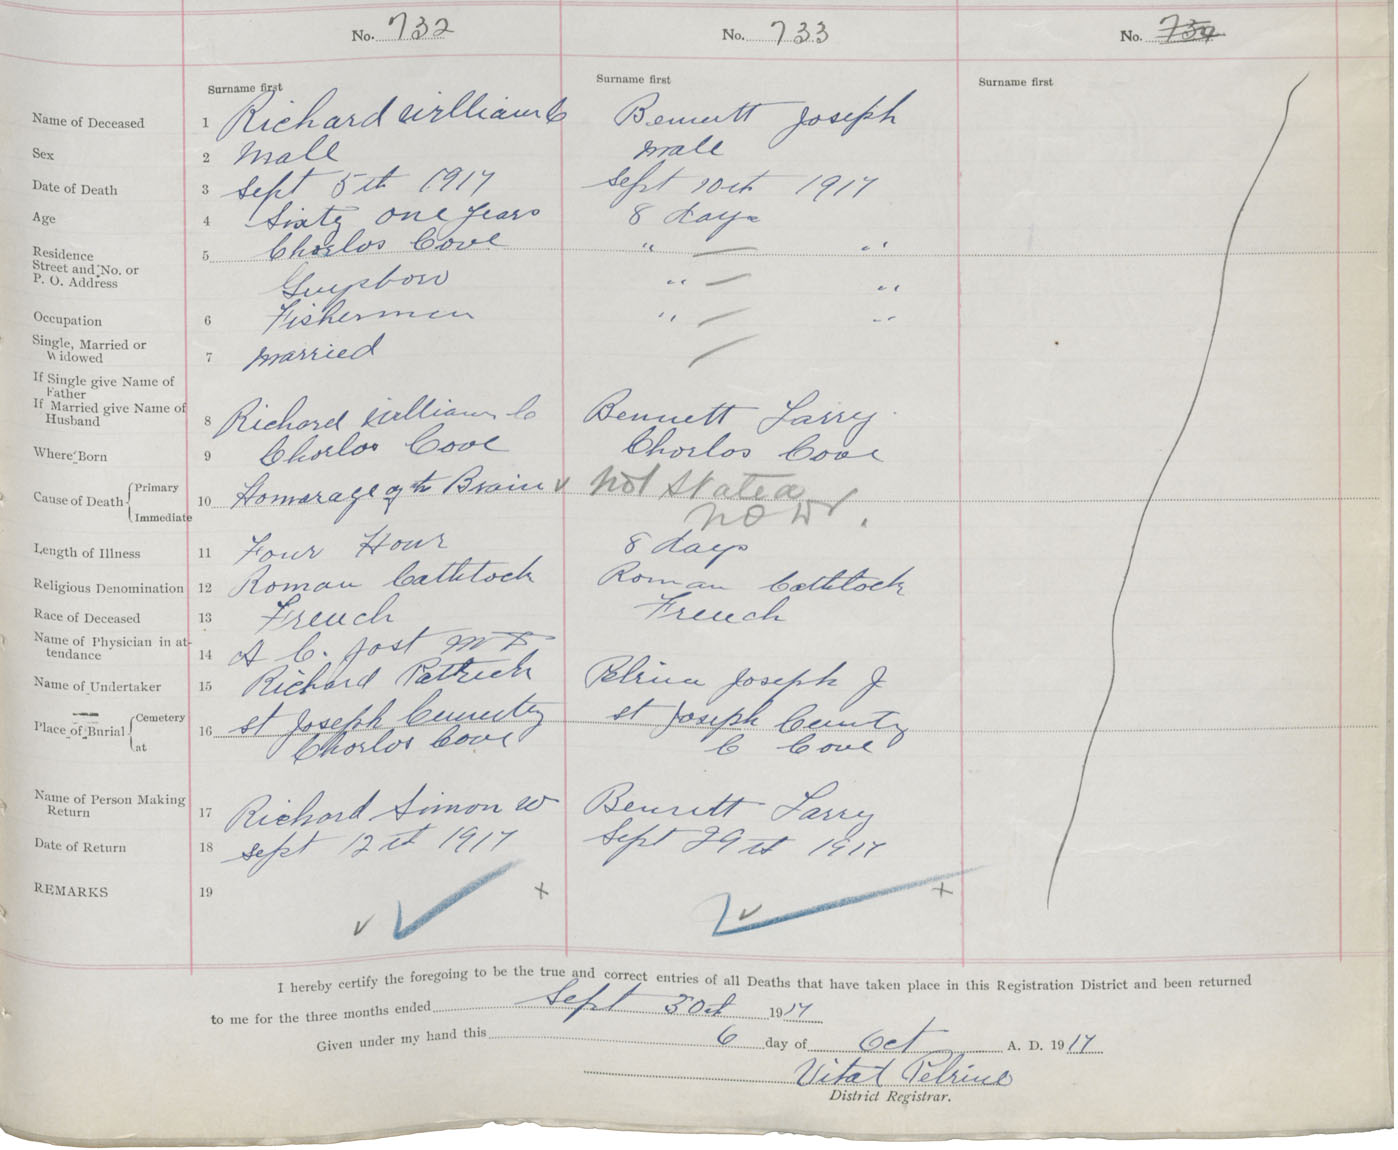 No. 732 No. 733 No. 734
Surname first Surname first Surname first
Name of Deceased 1 Richard William C Bennett Joseph
Sex 2 Male Male
Date of Death 3 Sept 5th 1917 Sept 10th 1917
Age 4 Sixty one years 8 days
Residence 5 Chorlos Cove " — "
Street and No. or
P. O. Address Guysboro " — "
Occupation 6 Fishermen " — "
Single, Married or
Widowed 7 Married —
If Single give Name of
Father
If Married give Name of
Husband 8 Richard William C Bennett Larry
Where Born 9 Chorlos Cove Chorlos Cove
Cause of Death { Primary
10 Homerage of th Brain ✓ Not Stated
Immediate now.
Length of Illness 11 Four Hour 8 days
Religious Denomination 12 Roman Cathtock Roman Cathtock
Race of Deceased 13 French French
Name of Physician in at-
tendance 14 A C. Jost M D
Name of Undertaker 15 Richard Patrick Pelrine Joseph J
Place of Burial { Cemetery
16 St Joseph Cemetry St Joseph Cemetry
at Chorlos Cove C Cove
Name of Person Making
Return 17 Richard Simon W Bennett Larry
Date of Return 18 Sept 12th 1917 Sept 29th 1917
REMARKS 19 ✓ ✓ x ✓ ✓ x
I hereby certify the foregoing to be the true and correct entries of all Deaths that have taken place in this Registration District and been returned
to me for the three months ended Sept 30th 1917
Given under my hand this 6 day of Oct A. D. 1917
Vital Pelrine
District Registrar.